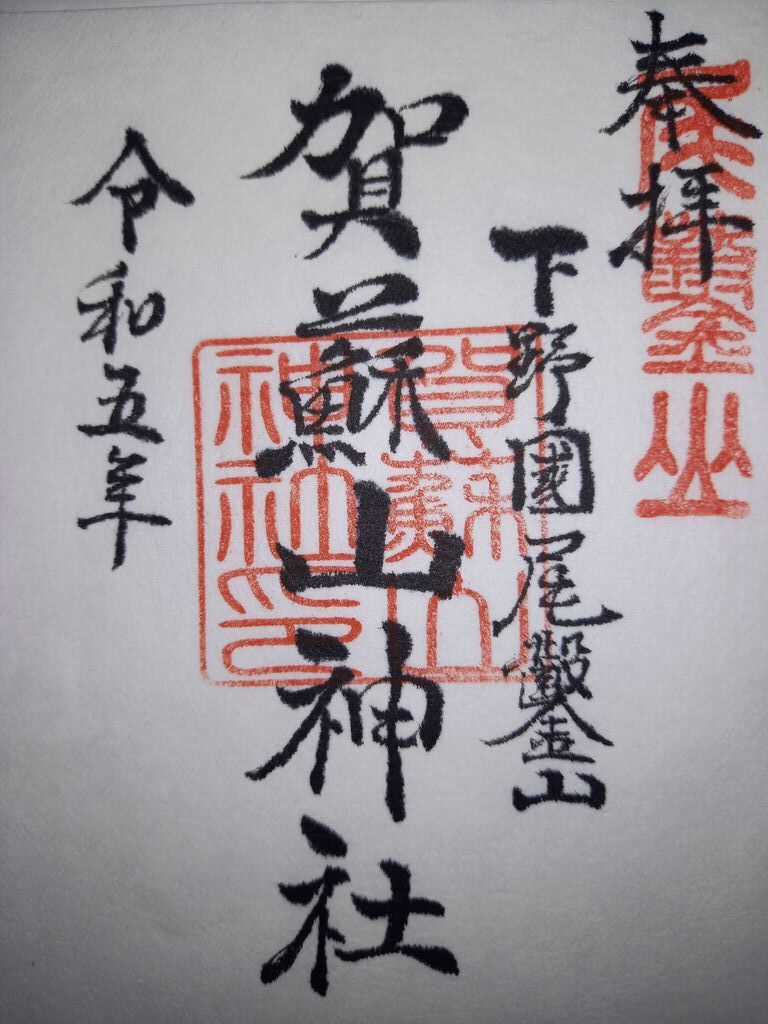 奉拝
下野國尾鑿山
賀蘇山神社
令和五年
尾鑿山
賀蘇山神社印